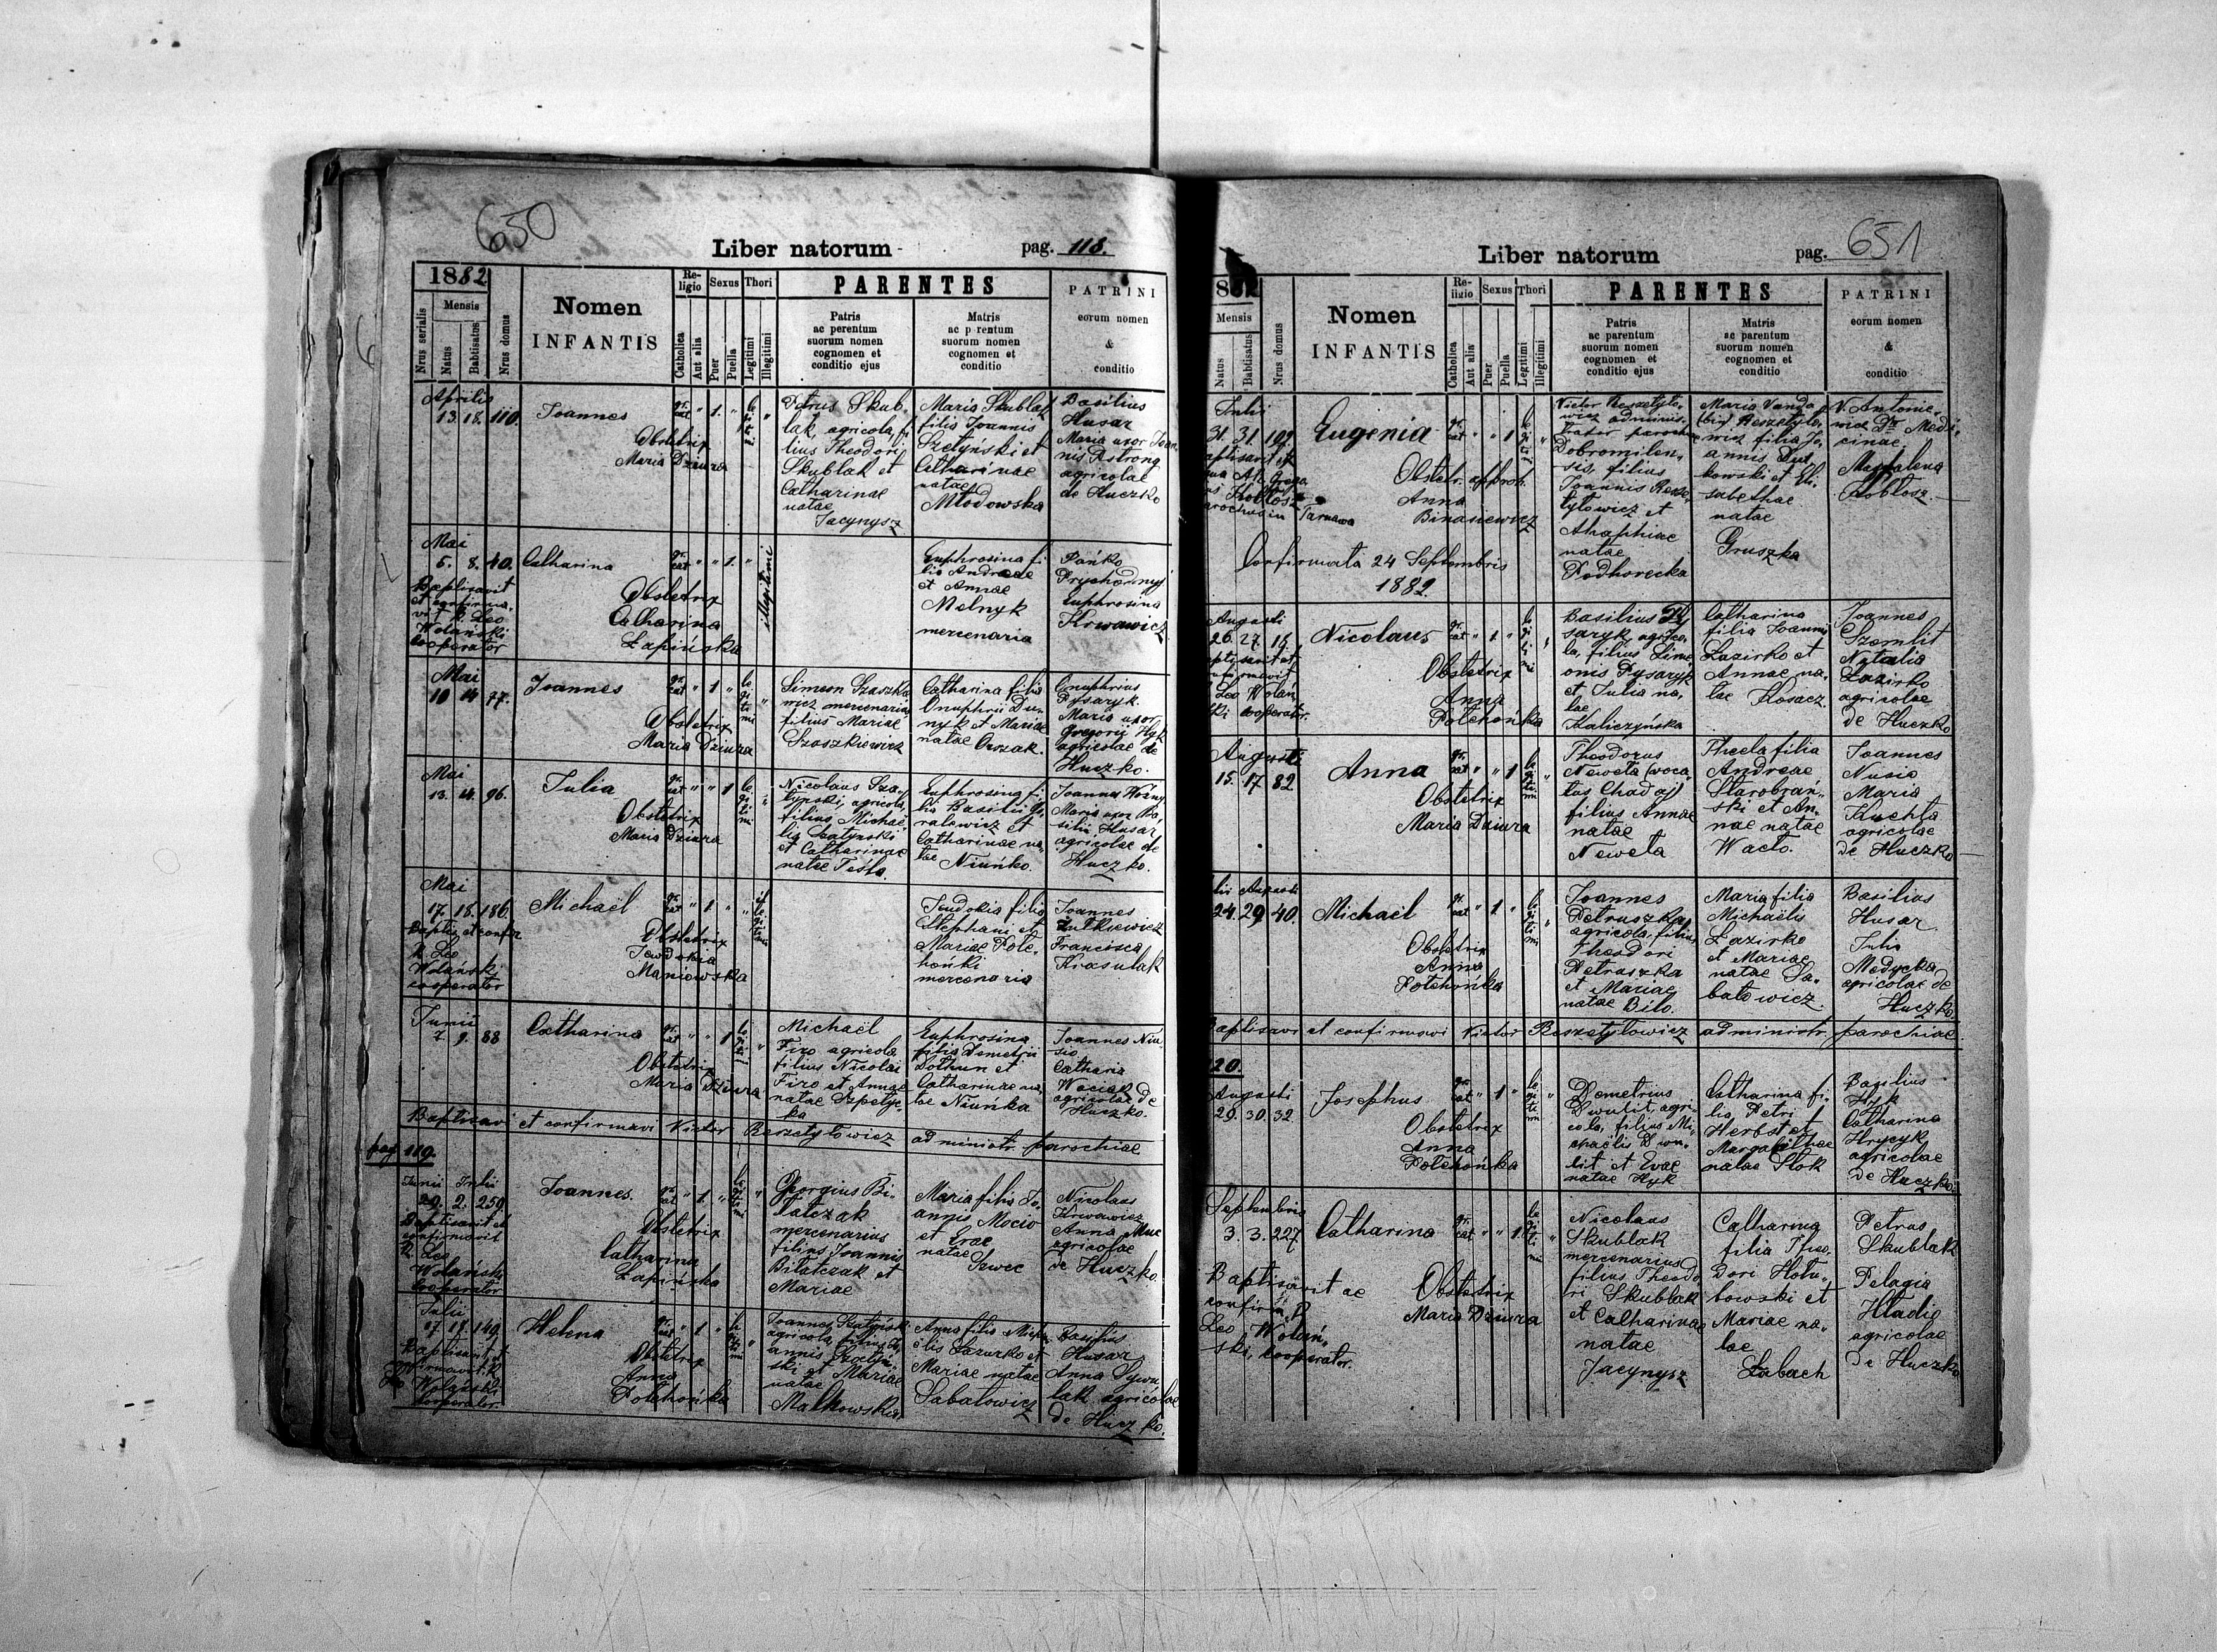 650
Liber natorum
pag. 118.
1882
Nrus serialis
Mensis
Natus
Babtisatus
Nrus domus
Nomen
INFANTIS
Religio
Catholica
Aut alia
Sexus
Puer
Puella
Thori
Legitimi
Illegitimi
PARENTES
Patris
ac perentum
suorum nomen
cognomen et
conditio ejus
Matris
ac p rentum
suorum nomen
cognomen et
conditio
PATRINI
eorum nomen
&
conditio
Aprilis
13. 18. 110.
Joannes
Obstetrix
Maria Dziura
gr. cat " 1. " legitimi "
Petrus Skub-
lak, agricola, fi-
lius Theodori
Skublak et
Catharinae
natae
Jacynysz
Maria Skublak
filia Joannis
Szetyński et
Catharinae
natae
Młodowska
Basilius
Husar
Maria uxor Joan
nis
agricolae
de Huczko
Mai
5. 8. 40.
Baptisavit
et confirma-
vit R. Leo
Wolański
cooperator
Catharina
Obstetrix
Catharina
Łapińska
gr. cat " " 1. " illegitimi
Euphrosina fi-
lia Andreae
et Annae
Melnyk
mercenaria
Pańko
Prychodnyj
Euphrosina
Krwawicz
Mai
10 14 77.
Joannes
Obstetrix
Maria Dziura
gr. cat " 1 " legitimi "
Simeon Szaszke
wicz mercenarius
filius Mariae
Szaszkiewicz
Catharina filia
Onuphrii Du-
nyk et Mariae
natae Orszak.
Onuphrius
Pysaryk.
Maria uxor
Gregorii Hyk
agricolae de
Huczko.
Mai
13. 14. 96.
Julia
Obstetrix
Maria Dziura
gr. cat " " 1 legitimi "
Nicolaus Sza-
tynski, agricola,
filius Michaë-
lis Szatynski
et Catharinae
natae Tesla.
Euphrosina fi-
lia Basilii
ralewicz et
Catharinae na-
tae Niuńko.
Joannes Woźny
Maria uxor Ba-
silii Husar
agricolae de
Huczko.
Mai
17. 18. 186.
Baptis. et confir
R. Leo
Wolański
cooperator
Michaël
Obstetrix
Jewdokia
Maniowska
gr. cat " 1 " " illegitimi
Jeudokia filia
Stephani et
Mariae Pole-
hoński
mercenaria
Joannes
Żulkiewicz
Francisca
Krasulak
Junii
7. 9. 88
Catharina
Obstetrix
Maria Dziura
gr. cat " " 1 legitimi "
Michaël
Firo agricola
filius Nicolai
Firo et Annae
natae Szpetyc-
ka
Euphrosina
filia Demetrii
Dothun et
Catharinae na-
tae Niuńka
Joannes Niu-
sio
Catharina
Waciak
agricolae de
Huczko.
Baptisavi et confirmavi Victor Reszetyłowicz administr. parochiae
pag 119.
Junii Julii
29. 2. 259.
Baptisavit et
confirmavit
R. Leo
Wolański
Cooperator
Joannes.
Obstetrix
Catharina
Łapińska
gr. cat " 1 " legitimi "
Georgius Bi-
łatczak
mercenarius
filius Joannis
Biłatczak et
Mariae
Maria filia Jo-
annis Mocio
et Evae
natae
Szwec
Nicolaus
Krwawicz
Anna
agricolae
de Huczko.
Julii
17 18. 149.
Baptisavit et
confirmavit R.
Leo Wolański
Cooperator
Helena
Obstetrix
Anna
Polehońka
gr. cat " 1 " legitimi "
Joannes Szatyński
agricola, filius Jo-
annis Szatyń-
ski et Mariae
natae
Malkowska
Anna filia Micha-
ëlis Lazurko et
Mariae natae
Sabatowicz
Basilius
Husar
Anna
agricolae
de Huczko.
651
Liber natorum
pag.
1882
Mensis
Natus
Babtisatus
Nrus domus
Nomen
INFANTIS
Religio
Catholica
Aut alia
Sexus
Puer
Puella
Thori
Legitimi
Illegitimi
PARENTES
Patris
ac parentum
suorum nomen
cognomen et
conditio ejus
Matris
ac parentum
suorum nomen
cognomen et
conditio
PATRINI
eorum nomen
&
conditio
Julii
31. 31. 109.
Tarnawa
Eugenia
Obstetr. approb.
Anna
Binasiewicz
Confirmata 24 Septembris
1882.
gr. cat " " 1 legitimi "
Victor Reszetyło-
wicz adminis-
trator parochiae
Dobromilen-
sis, filius
Joannis Resze
tyłowicz et
Ahaphiae
natae
Podhorecka
Maria Vanda
(bin) Reszetyło-
wicz filia Jo-
annis Dut
kowski et Eli-
sabethae
natae
Gruszka
V. Antonie-
wicz Dr Medi-
cinae.
Magdalena
Kobłosz.
Augusti
26. 27. 18.
Leo Wolań
ski cooperator.
Nicolaus
Obstetrix
Anna
Polehońka
gr. cat " 1 " legitimi "
Basilius Py
saryk, agrico-
la, filius Sime-
onis Pysaryk
et Julia na-
tae
Haliczyńska
Catharina
filia Joannis
Lazirko et
Annae na-
tae Kosacz.
Joannes
Szemlit
Natalia
Lazirko
agricolae
de Huczko
Augusti
15. 17 82
Anna
Obstetrix
Maria Dziura
gr. cat " " 1 legitimi "
Theodorus
Neweta (voca
tus Chadaj)
filius Annae
natae
Neweta
Thecla filia
Andreae
Starobrań-
ski et An-
nae natae
Wacło.
Joannes
Nusio
Maria
Kuchta
agricolae
de Huczko
Augusti
24. 29 40.
Michaël
Obstetrix
Anna
Polehońka
gr. cat " 1 " legitimi "
Joannes
Petruszka
agricola, filius
Theodori
Petruszka
et Mariae
natae Biło.
Maria filia
Michaëlis
Lazirko
et Mariae
natae Sa-
batowicz.
Basilius
Husar
Julia
Medycka
agricolae de
Huczko.
Baptisavi et confirmavi Victor Reszetyłowicz administr. parochiae
120.
Augusti
29. 30. 32.
Josephus
Obstetrix
Anna
Polehońka
gr. cat " 1 " legitimi "
Demetrius
Dwulit, agri-
cola, filius Mi-
chaëlis Dwu-
lit et Evae
natae Hyk
Catharina fi-
lia Petri
Herbst et
Margarithae
natae Stok
Basilius
Hyk
Catharina
Hrycyk
agricolae
de Huczko.
Septembris
3. 3. 227.
Baptisavit ac
confirm. R.
Leo Wolań-
ski, cooperator.
Catharina
Obstetrix
Maria Dziura
gr. cat " " 1. legitimi "
Nicolaus
Skublak
mercenarius
filius Theodo
ri Skublak
et Catharinae
natae
Jacynysz
Catharina
filia Theo-
dori Hołu-
bowski et
Mariae na-
tae
Łabach
Petrus
Skublak
Pelagia
Hładio
agricolae
de Huczko